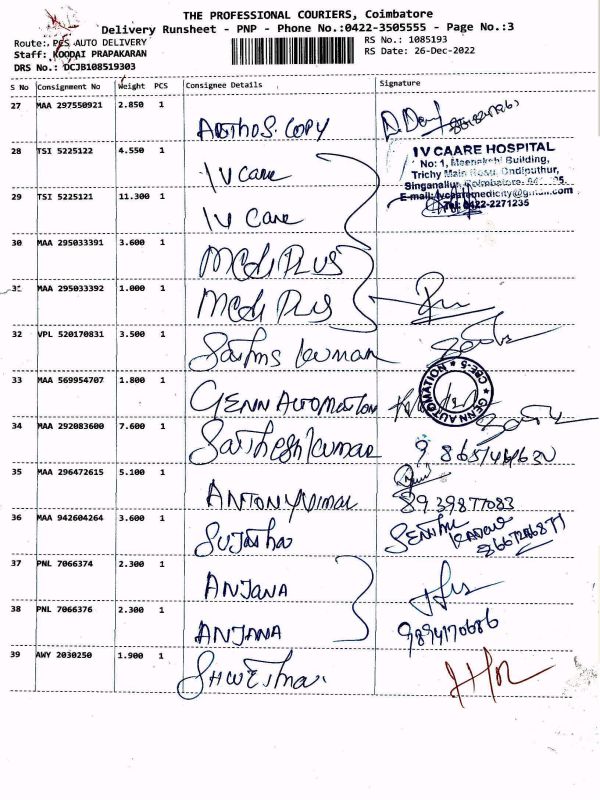 THE PROFESSIONAL COURIERS, Coimbatore
Delivery Runsheet - PNP - Phone No.:0422-3505555 - Page No.:3
Route: PES AUTO DELIVERY
RS No.: 1085193
Staff: KOODAI PRAPAKARAN
RS Date: 26-Dec-2022
DRS No.: DCJB108519303
S No Consignment No Weight PCS Consignee Details Signature
27 MAA 297550921 2.850 1
COPY
28 TSI 5225122 4.550 1
IV Care
IV CAARE HOSPITAL
No: 1, Meenakshi Building,
Trichy Main Road, Ondiputhur,
Singanallur, Coimbatore-
29 TSI 5225121 11.300 1
IV Care
Tel: 0422-2271235
30 MAA 295033391 3.600 1
Medi PLUS
31 MAA 295033392 1.000 1
Medi PLUS
32 VPL 520170831 3.500 1
Kumar
33 MAA 569954707 1.800 1
GENN AUTOMATION
GENN AUTOMATION * CBE-5 *
34 MAA 292083600 7.600 1
Sathesh Kumar
35 MAA 296472615 5.100 1
ANTONY Vimal
8939877083
36 MAA 942604264 3.600 1
Sujatha
37 PNL 7066374 2.300 1
ANJANA
38 PNL 7066376 2.300 1
ANJANA
9894170686
39 AWY 2030250 1.900 1
SHWEtha.